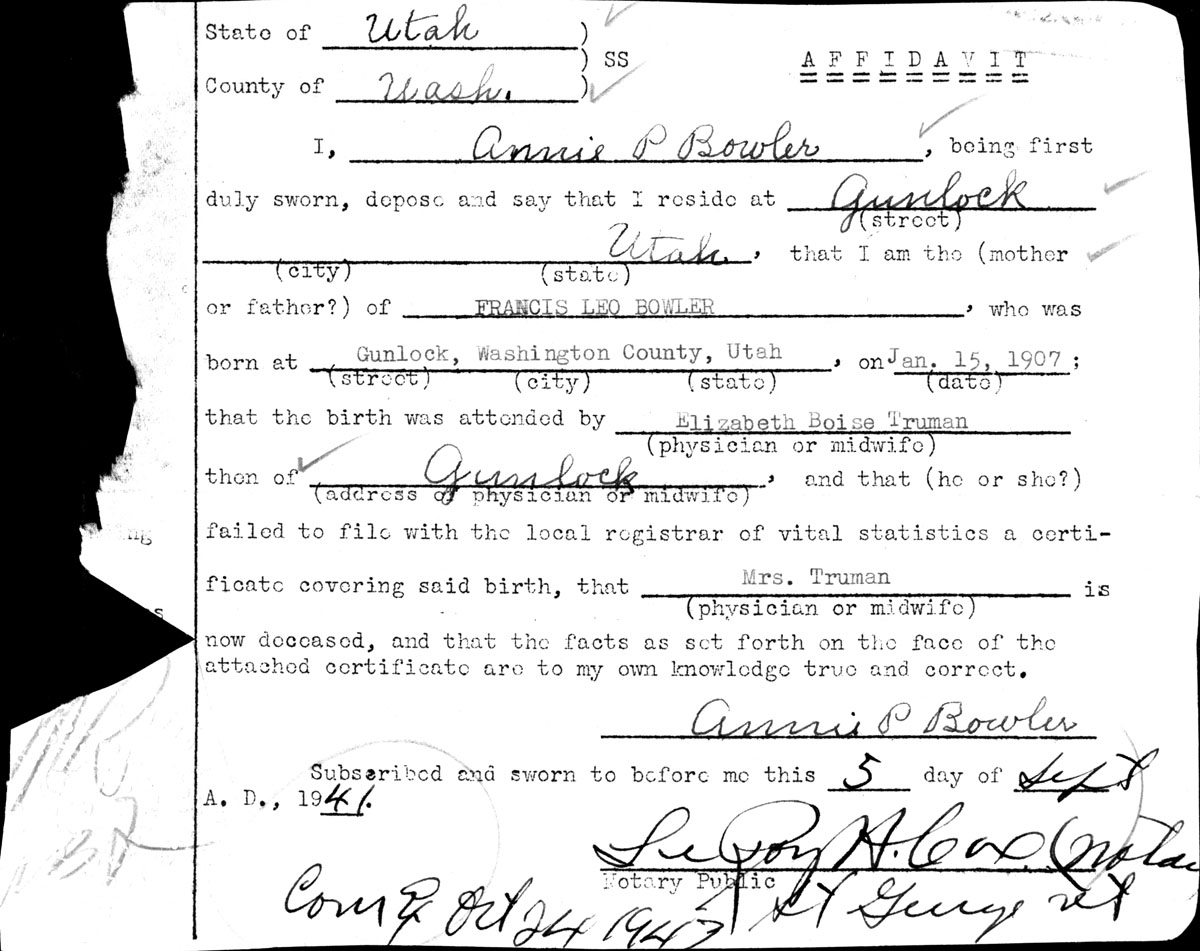 State of Utah )
) SS
AFFIDAVIT
County of Wash. )
I, Annie P Bowler, being first
duly sworn, depose and say that I reside at Gunlock
(street)
Utah, that I am the (mother
(city) (state)
or father?) of FRANCIS LEO BOWLER, who was
born at Gunlock, Washington County, Utah, on Jan. 15, 1907;
(street) (city) (state) (date)
that the birth was attended by Elizabeth Boise Truman
(physician or midwife)
then of Gunlock, and that (he or she?)
(address of physician or midwife)
failed to file with the local registrar of vital statistics a certi-
ficate covering said birth, that Mrs. Truman is
(physician or midwife)
now deceased, and that the facts as set forth on the face of the
attached certificate are to my own knowledge true and correct.
Annie P Bowler
Subscribed and sworn to before me this 5 day of Sept
A. D., 1941.
LeRoy H. Cox (Nota
Notary Public
Com Ex Oct 24 1943 St George Ut